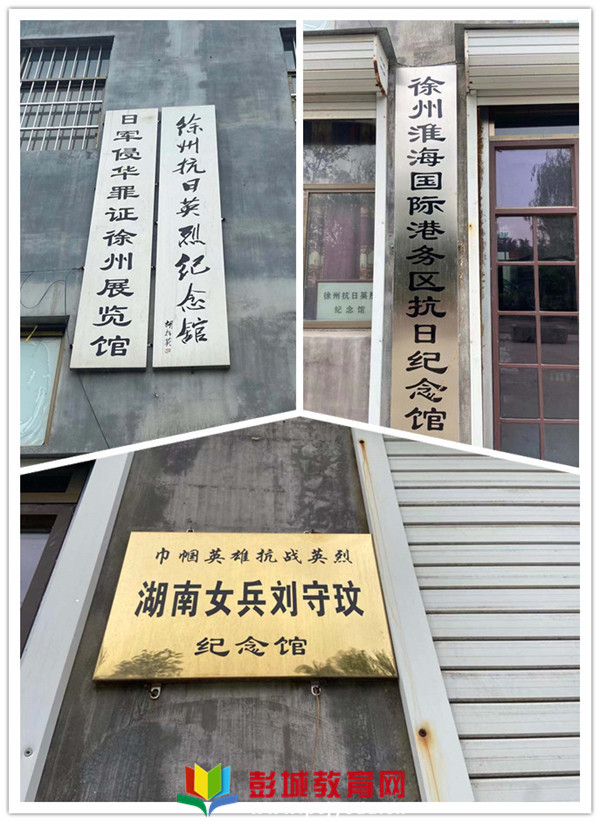 日军侵华罪证徐州展览馆
徐州抗日英烈纪念馆
徐州淮海国际港务区抗日纪念馆
徐州抗日英烈
纪念馆
巾帼英雄抗战英烈
湖南女兵刘守玟
纪念馆
彭城教育网